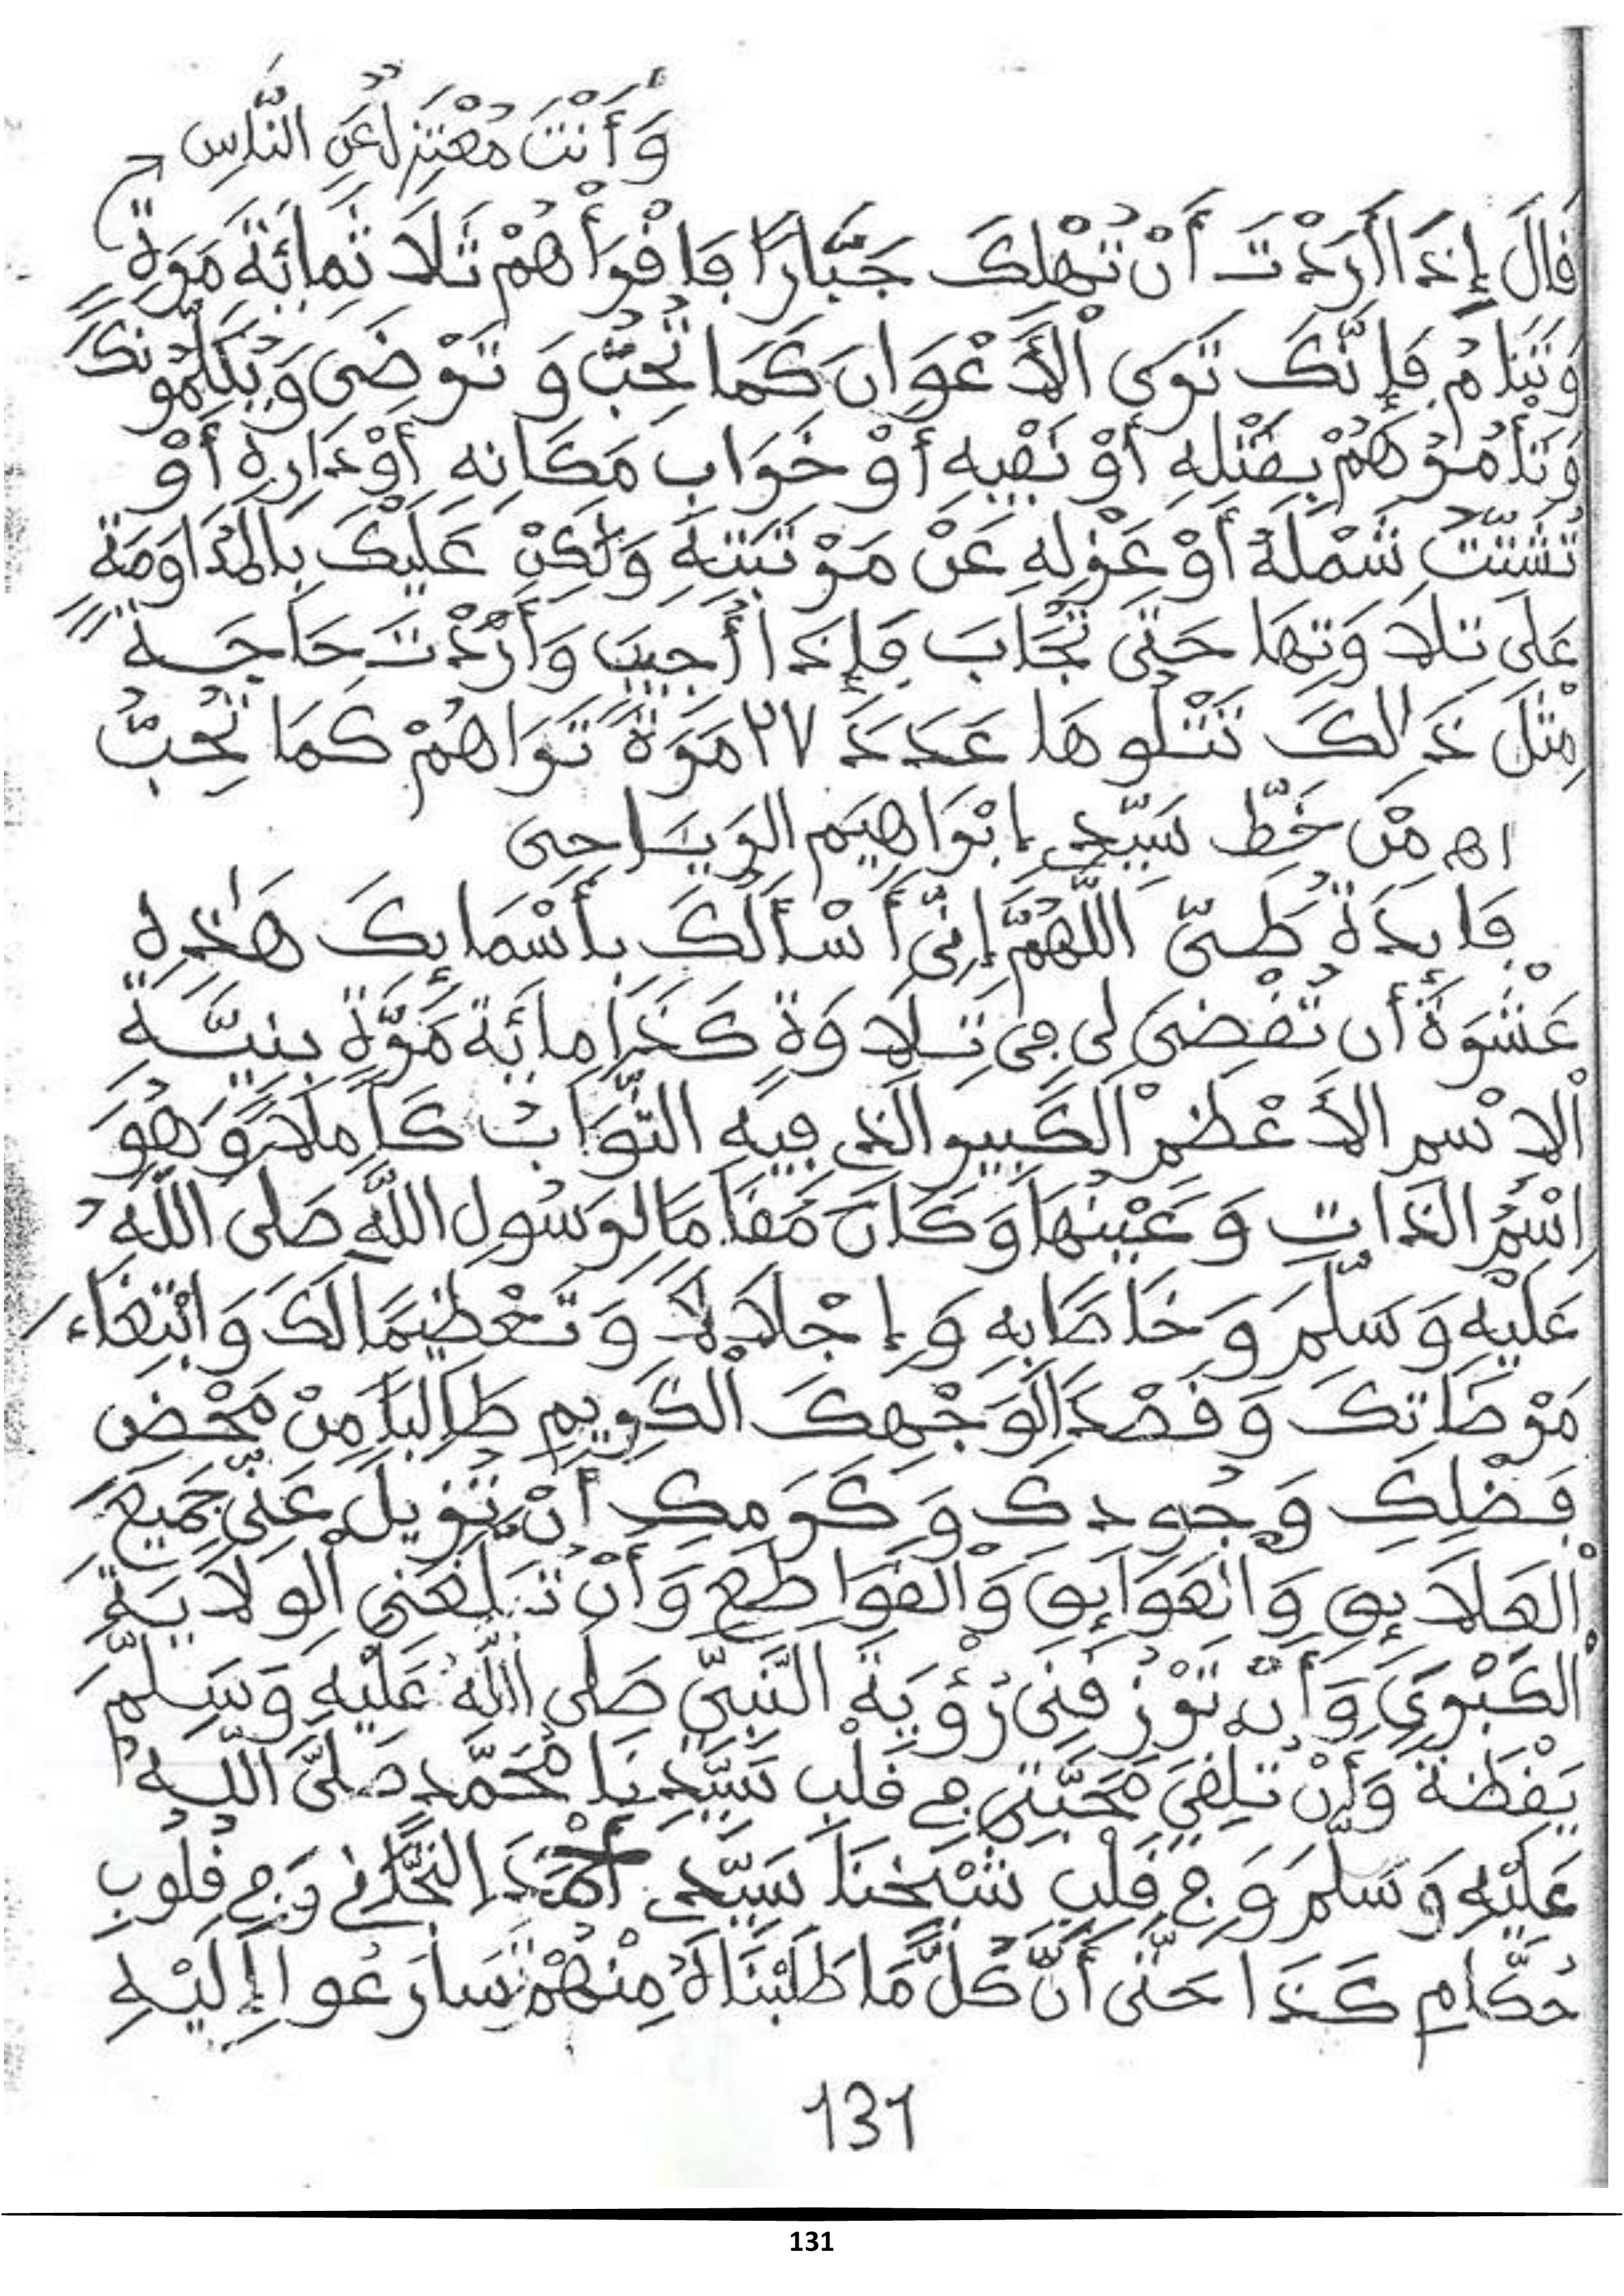 وَأَنْتَ مُعْتَزِلٌ عَنِ النَّاسِ
قَالَ إِذَا أَرَدْتَ أَنْ تُهْلِكَ جَبَّارًا فَاقْرَأْهُمْ ثَلَاثَمِائَةَ مَرَةٍ
وَتَنَامُ فَإِنَّكَ تَرَى الْأَعْوَانَ كَمَا تُحِبُّ وَتَرْضَى وَيُكَلِّمُونَكَ
وَتَأْمُرُهُمْ بِقَتْلِهِ أَوْ نَقْبِهِ أَوْ خَرَابِ مَكَانِهِ أَوْ دَارِهِ أَوْ
تُشَتِّتَ شَمْلَهُ أَوْ عَزْلِهِ عَنْ مَرْتَبَتِهِ وَلَكِنْ عَلَيْكَ بِالْمُدَاوَمَةِ
عَلَى تِلَاوَتِهَا حَتَّى تُجَابَ فَإِذَا أُجِيبَ وَأَرَدْتَ حَاجَةً
مِثْلَ ذَالِكَ تَتْلُوهَا عَدَدَ ٢٧ مَرَةً تَرَاهُمْ كَمَا تُحِبُّ
اه مِنْ خَطِّ سَيِّدِي ابْرَاهِيمَ الرِّيَاحِي
فَايِدَةٌ طَيّ اللَّهُمَّ إِنِّي أَسْأَلُكَ بِأَسْمَايِكَ هَذِهِ
عَشْرَةٌ أَنْ تَقْضِيَ لِي فِي تِلَاوَةِ كَذَا مِائَةَ مَرَّةٍ بِنِيَّةِ
الْاسْمِ الْأَعْظَمِ الْكَبِيرِ الَّذِي فِيهِ الثَّوَابُ كَامِلًا وَهُوَ
اسْمُ الذَّاتِ وَعَيْنُهَا وَكَانَ مَقَامًا لِرَسُولِ اللَّهِ صَلَى اللَّهُ
عَلَيْهِ وَسَلَّمَ وَخَاصًّا بِهِ وَإِجْلَالًا وَتَعْظِيمًا لَكَ وَابْتِغَاءَ
مَرْضَاتِكَ وَقَصْدًا لِوَجْهِكَ الْكَرِيمِ طَالِبًا مِنْ مَحْضِ
فَضْلِكَ وَجُودِكَ وَكَرَمِكَ أَنْ تُزِيلَ عَنِّي جَمِيعَ
الْعَلَايِقِ وَالْعَوَايِقِ وَالْقَوَاطِعِ وَأَنْ تُبَلِّغَنِي الْوِلَايَةَ
الْكُبْرَى وَأَنْ تَرْزُقَنِي رُؤْيَةَ النَّبِيِّ صَلَى اللَّهُ عَلَيْهِ وَسَلَّمَ
يَقْظَةً وَأَنْ تُلْقِيَ مَحَبَّتِي فِي قَلْبِ سَيِّدِنَا مُحَمَّدٍ صَلَّى اللَّهُ
عَلَيْهِ وَسَلَّمَ وَفِي قَلْبِ شَيْخِنَا سَيِّدِي أَحْمَدَ التِّجَّانِي وَفِي قُلُوبِ
حُكَّامِ كَذَا حَتَّى أَنَّ كُلَّ مَا طَلَبْنَاهُ مِنْهُمْ سَارَعُوا إِلَيْهِ
131
131